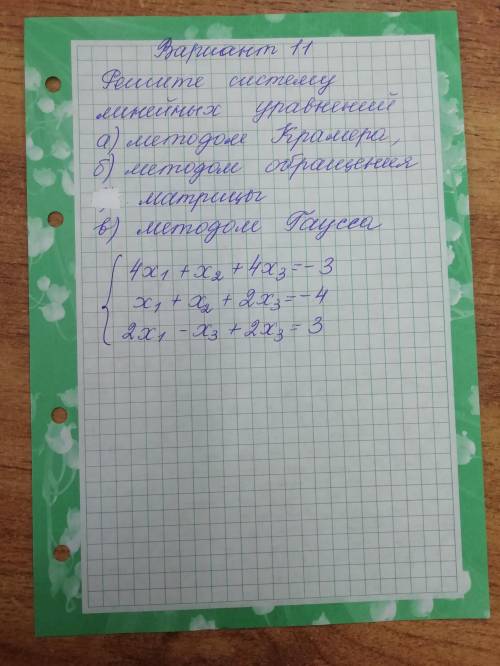 Вариант 11
Решите систему
линейных уравнений
а) методом Крамера,
б) методом обращения
матрицы
в) методом Гаусса
4x₁ + x₂ + 4x₃ = -3
x₁ + x₂ + 2x₃ = -4
2x₁ - x₃ + 2x₃ = 3